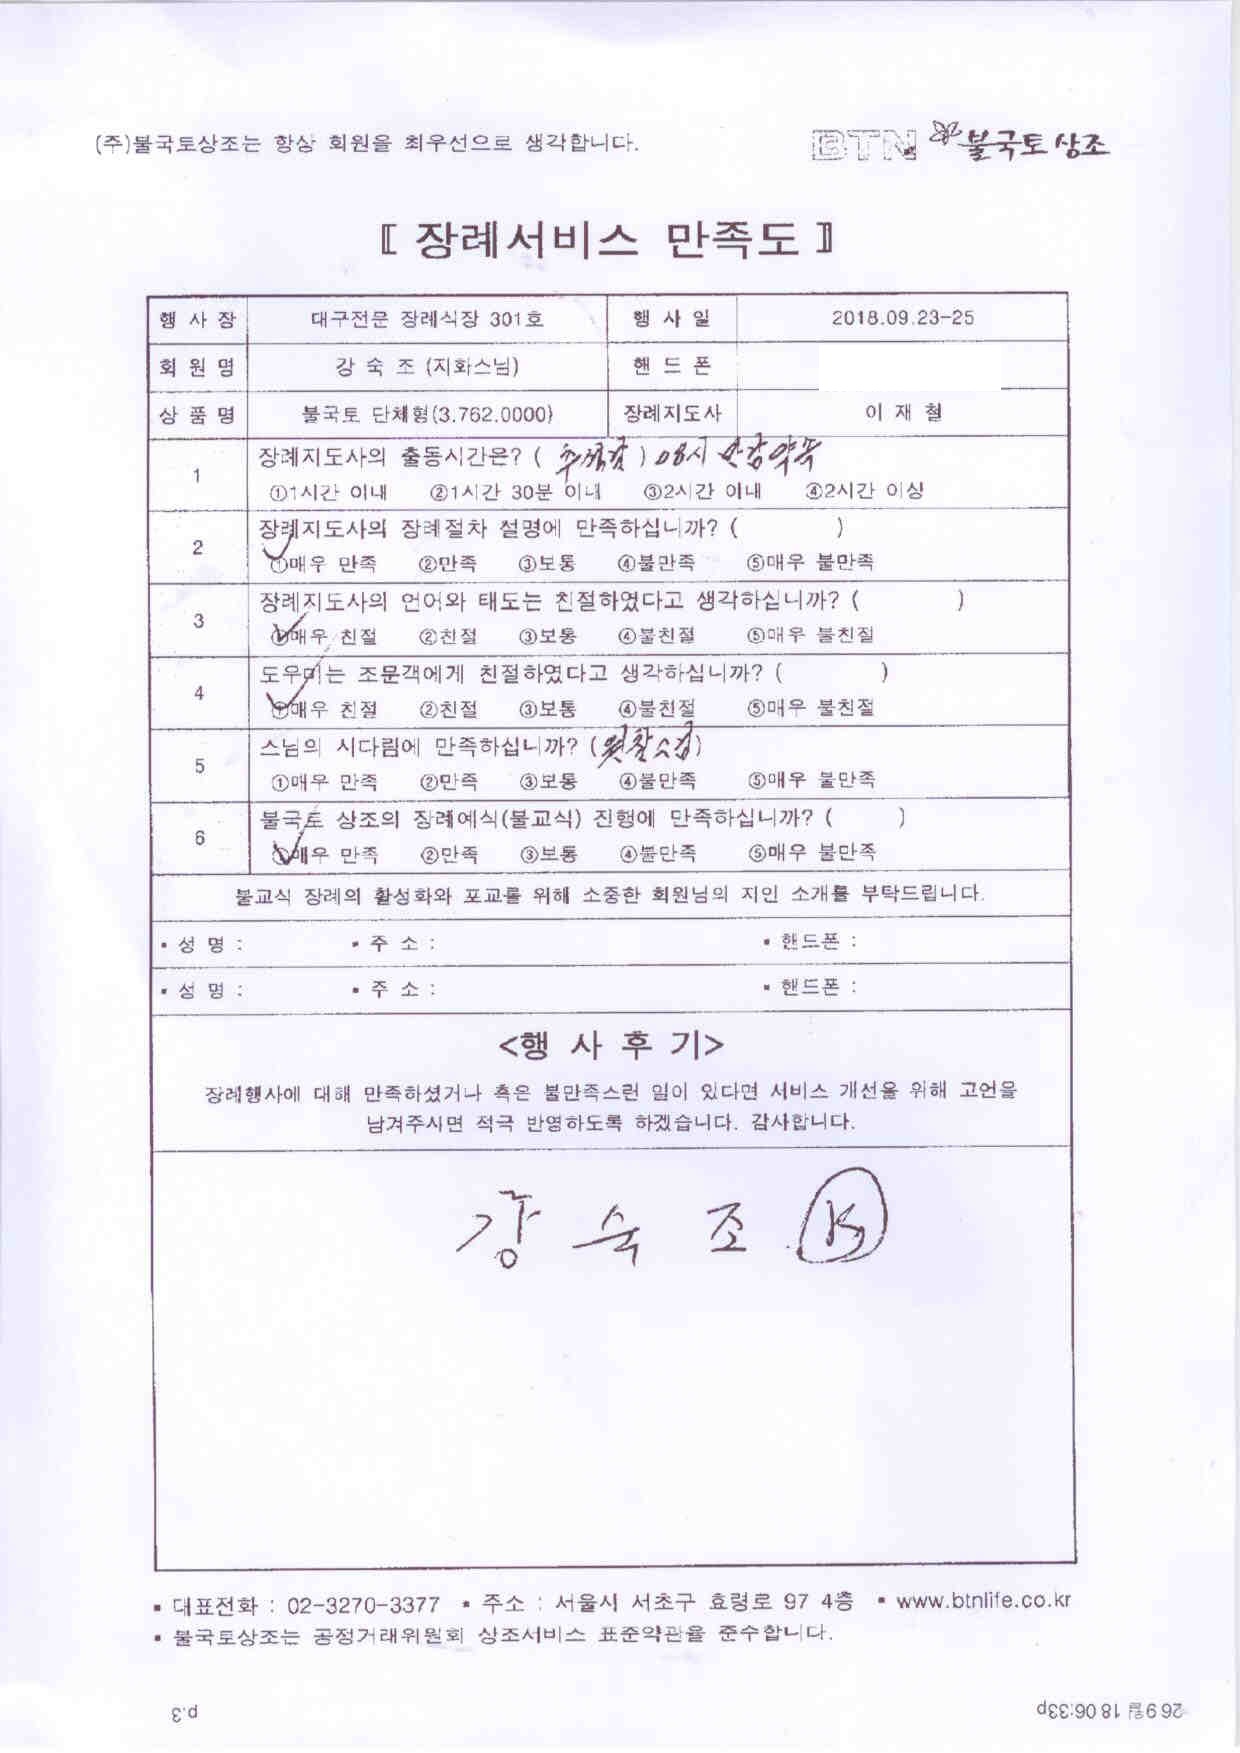 (주)불국토상조는 항상 회원을 최우선으로 생각합니다.
BTN 불국토 상조
〖 장례서비스 만족도 〗
행 사 장 대구전문 장례식장 301호 행 사 일 2018.09.23-25
회 원 명 강 숙 조 (지화스님) 핸 드 폰
상 품 명 불국토 단체형(3.762.0000) 장례지도사 이 재 철
1 장례지도사의 출동시간은? ( ) 08시 약속
①1시간 이내 ②1시간 30분 이내 ③2시간 이내 ④2시간 이상
2 장례지도사의 장례절차 설명에 만족하십니까? ( )
①매우 만족 ②만족 ③보통 ④불만족 ⑤매우 불만족
3 장례지도사의 언어와 태도는 친절하였다고 생각하십니까? ( )
①매우 친절 ②친절 ③보통 ④불친절 ⑤매우 불친절
4 도우미는 조문객에게 친절하였다고 생각하십니까? ( )
①매우 친절 ②친절 ③보통 ④불친절 ⑤매우 불친절
5 스님의 시다림에 만족하십니까? ( )
①매우 만족 ②만족 ③보통 ④불만족 ⑤매우 불만족
6 불국토 상조의 장례예식(불교식) 진행에 만족하십니까? ( )
①매우 만족 ②만족 ③보통 ④불만족 ⑤매우 불만족
불교식 장례의 활성화와 포교를 위해 소중한 회원님의 지인 소개를 부탁드립니다.
▪ 성 명 : ▪ 주 소 : ▪ 핸드폰 :
▪ 성 명 : ▪ 주 소 : ▪ 핸드폰 :
<행 사 후 기>
장례행사에 대해 만족하셨거나 혹은 불만족스런 일이 있다면 서비스 개선을 위해 고언을
남겨주시면 적극 반영하도록 하겠습니다. 감사합니다.
강 숙 조
▪ 대표전화 : 02-3270-3377 ▪ 주소 : 서울시 서초구 효령로 97 4층 ▪ www.btnlife.co.kr
▪ 불국토상조는 공정거래위원회 상조서비스 표준약관을 준수합니다.
p.3
26 9월 18 06:33p